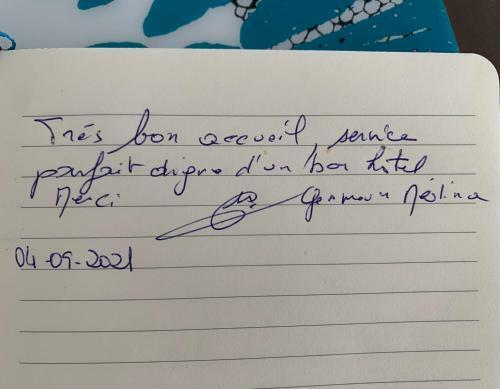 Trés bon accueil, service
parfait digne d'un bon hotel
Merci Germain Mélina
04-09-2021